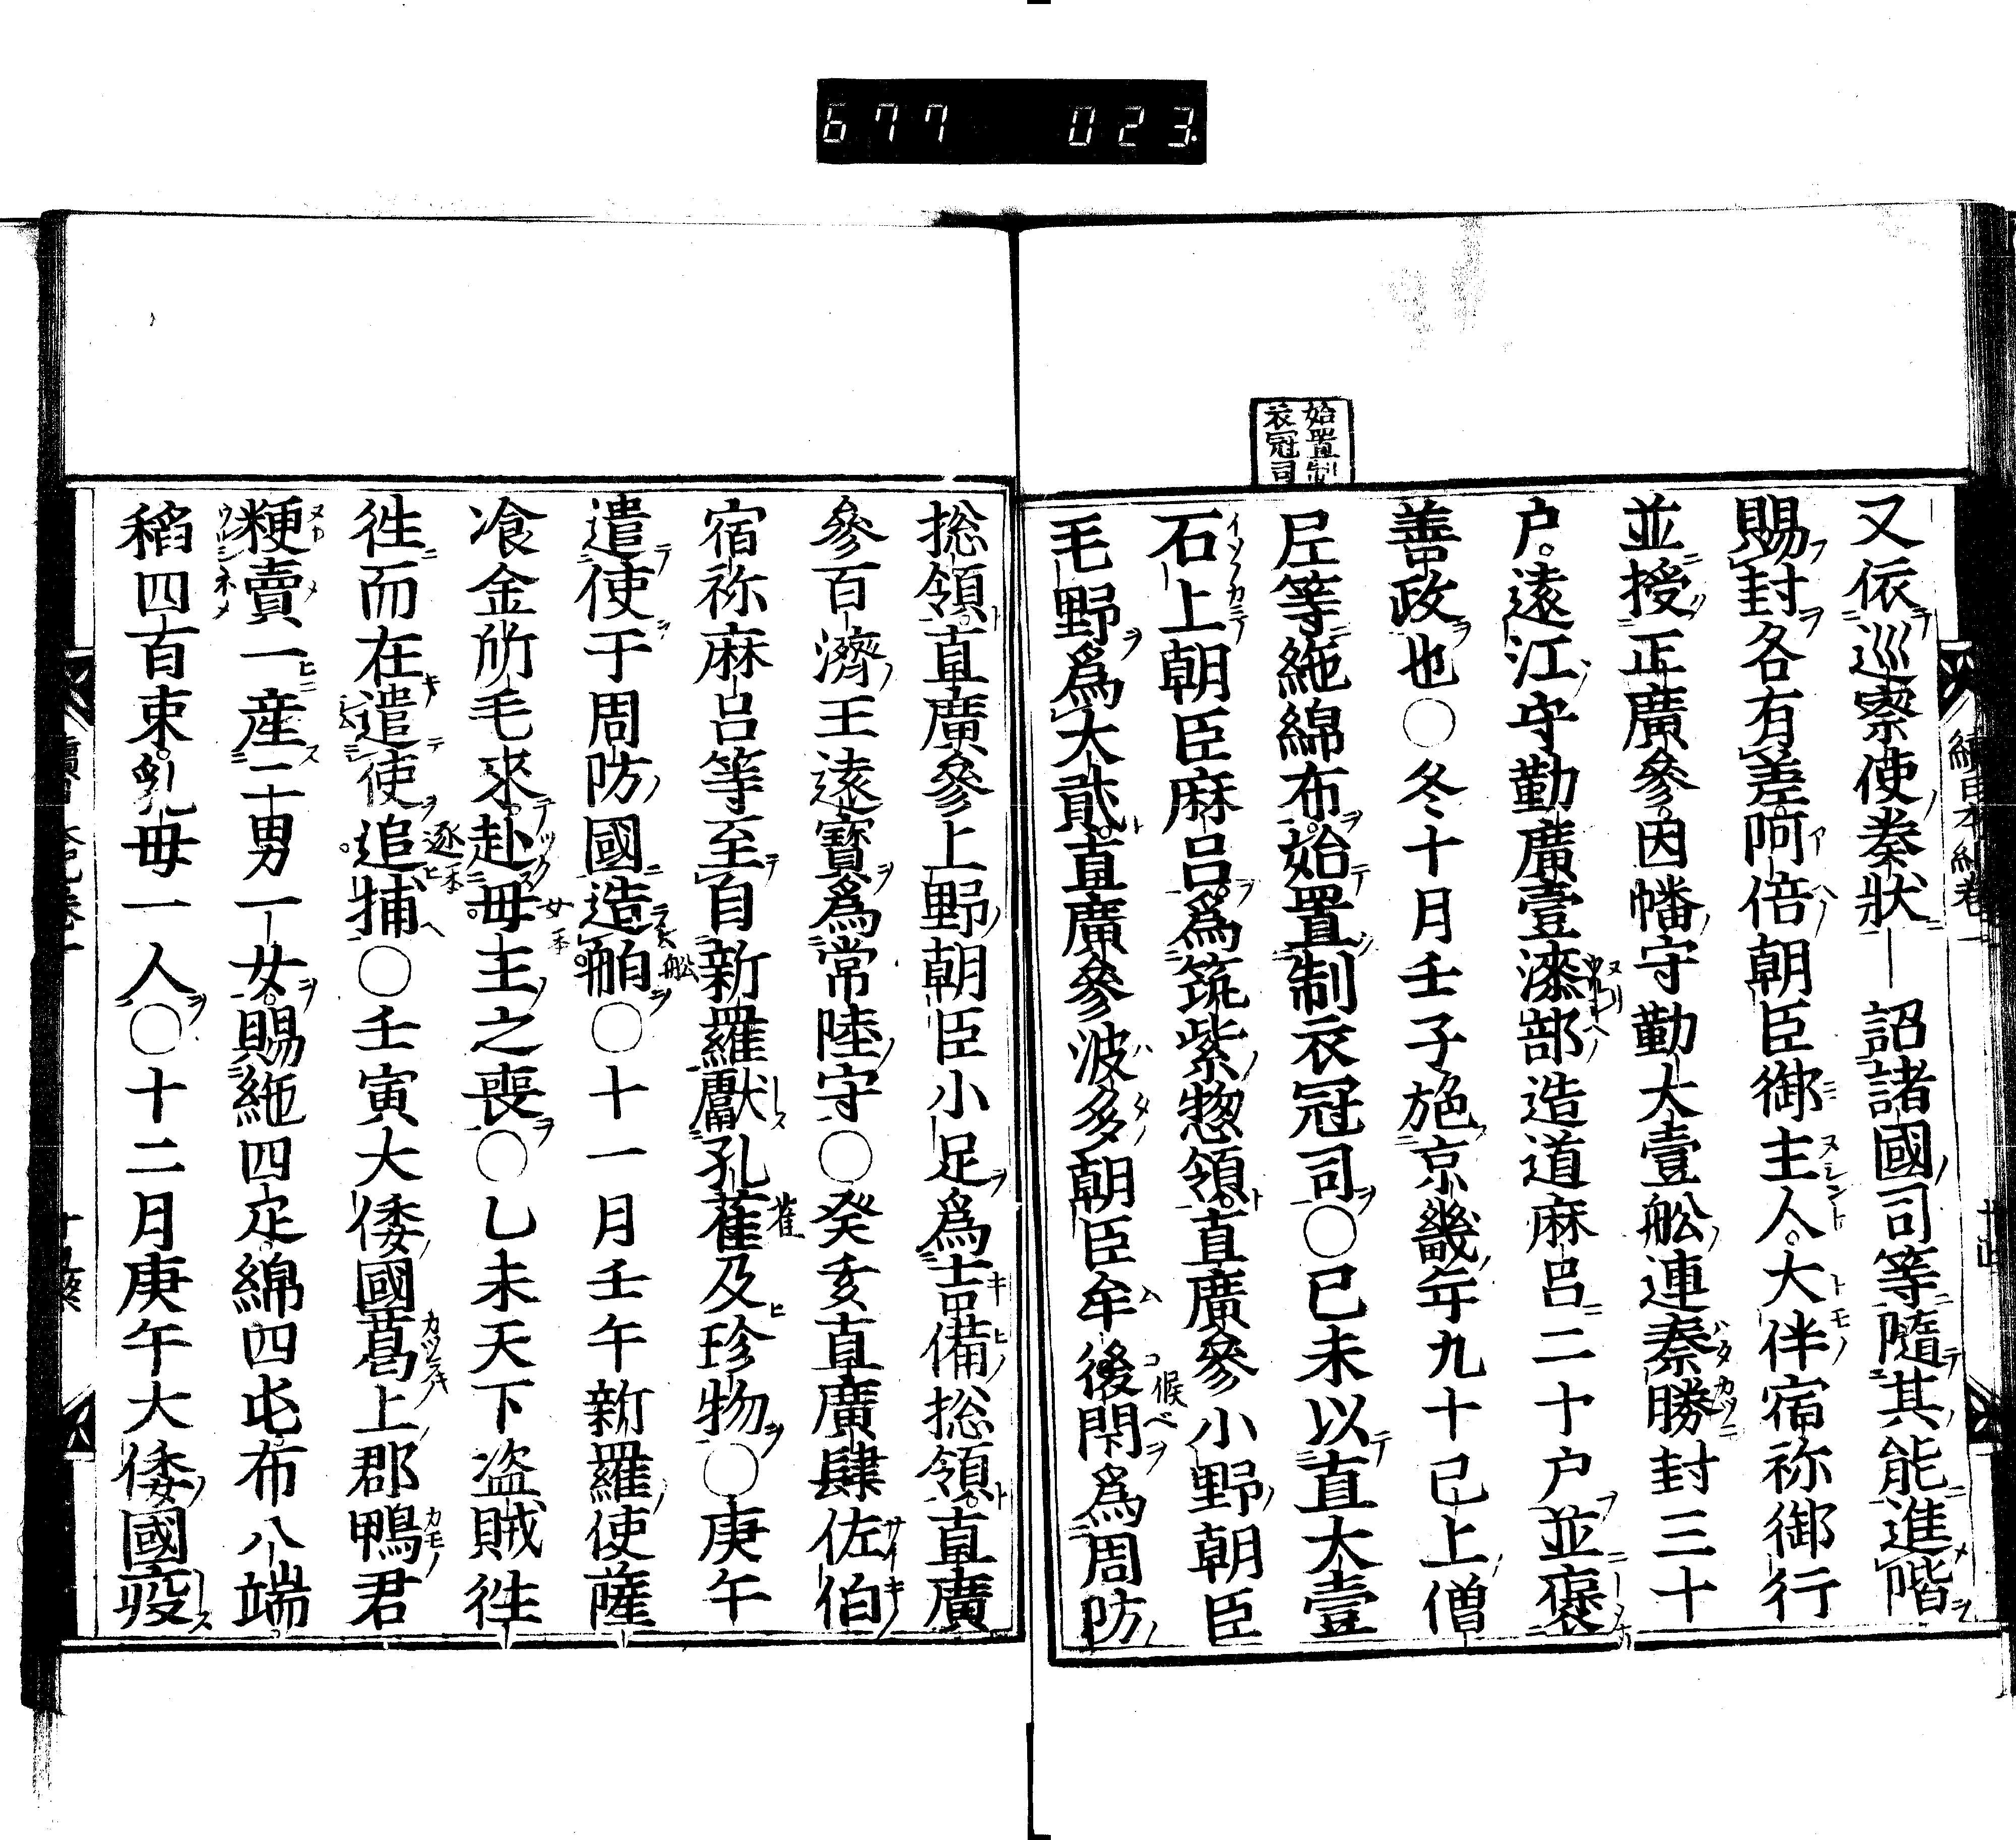 677 023
始置制
衣冠司
又依巡察使奏狀詔諸國司等隨其能進階
賜封各有差阿倍朝臣御主人大伴宿祢御行
並授正廣參因幡守勤大壹舩連秦勝封三十
户遠江守勤廣壹漆部造道麻呂二十户並襃
善政也○冬十月壬子施京畿年九十已上僧
尼等絁綿布始置制衣冠司○已未以直大壹
石上朝臣麻呂爲筑紫惣領直廣參小野朝臣
毛野爲大貳直廣參波多朝臣牟後閇爲周防
捴領直廣參上野朝臣小足爲吉備捴領直廣
參百濟王遠寶爲常陸守○癸亥直廣肆佐伯
宿祢麻呂等至自新羅獻孔雀及珍物○庚午
遣使于周防國造舶○十一月壬午新羅使薩
飡金所毛來赴母主之喪○乙未天下盗賊徃
徃而在遣使追捕○壬寅大倭國葛上郡鴨君
粳賣一産二男一女賜絁四疋綿四屯布八端
稻四百束乳母一人○十二月庚午大倭國疫